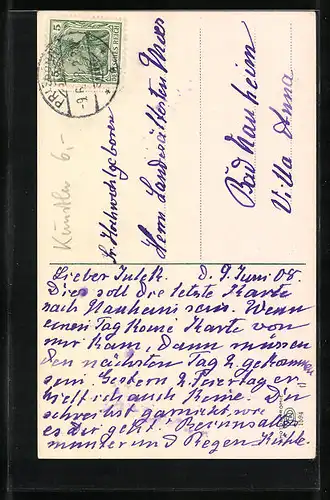 5
DEUTSCHES REICH
Künstler 6,-
Sr. Hochwohlgeboren
Herrn Landesältesten
Bad Nauheim
Villa Anna
Lieber D. 9. Juni 08.
Dies soll die letzte Karte
nach Nauheim sein. Wenn
einen Tag keine Karte von
mir kam, dann müssen
den nächsten Tag 2 gekommen
sein. Gestern 2. Feiertag er-
hielt ich auch keine. Du
schreibst garnicht, wie
es dir geht. Bei uns alles
munter und Regen Kühle.
1994